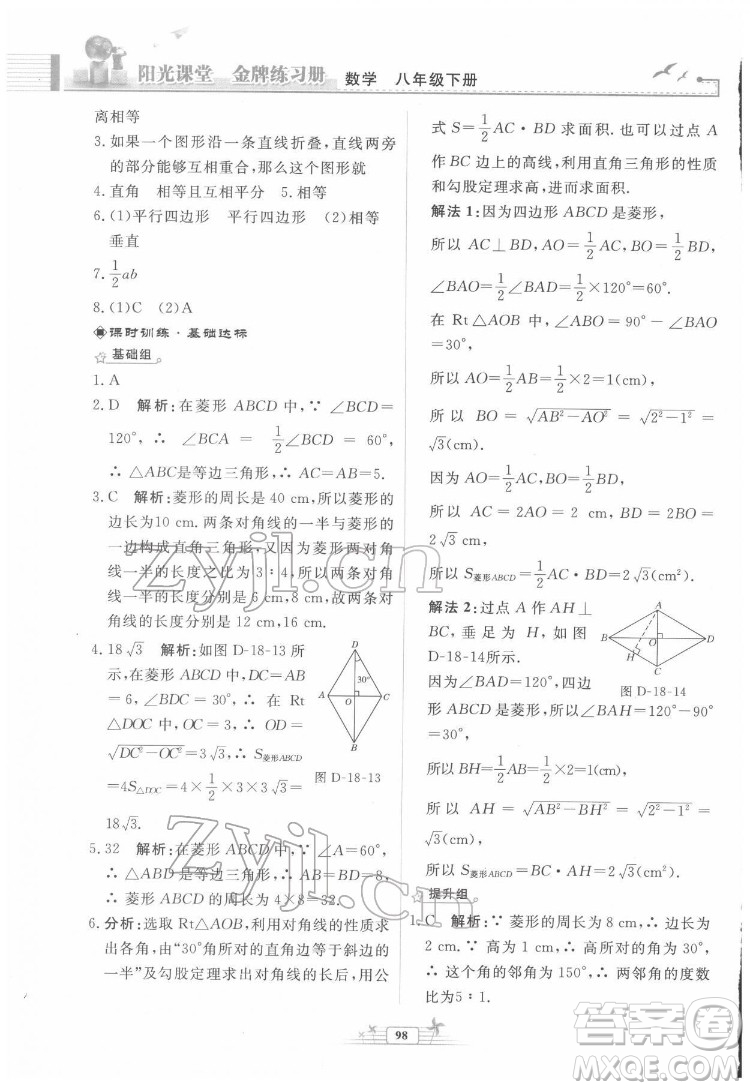 阳光课堂 金牌练习册 数学 八年级下册
离相等
3. 如果一个图形沿一条直线折叠，直线两旁
的部分能够互相重合，那么这个图形就
4. 直角 相等且互相平分 5. 相等
6. (1)平行四边形 平行四边形 (2)相等
垂直
7. 1/2 ab
8. (1)C (2)A
课时训练·基础达标
基础组
1. A
2. D 解析：在菱形 ABCD 中，∵ ∠BCD =
120°，∴ ∠BCA = 1/2 ∠BCD = 60°，
∴ △ABC是等边三角形，∴ AC=AB=5.
3. C 解析：菱形的周长是 40 cm，所以菱形的
边长为10 cm. 两条对角线的一半与菱形的
一边构成直角三角形，又因为菱形两对角
线一半的长度之比为 3∶4，所以两对角
线一半的长度分别是 6 cm，8 cm，所以对
角线的长度分别是 12 cm，16 cm.
4. 18√3 解析：如图 D-18-13 所
示，在菱形 ABCD 中，∵ CD
=6，∠BDC = 30°，∴ 在 Rt
△DOC 中，OC = 3，∴ OD =
√(DC²－OC²)=3√3，∴ S菱形ABCD
=4S△DOC=4×1/2×3×3√3=
18√3.
D
30°
A
O
C
B
图 D-18-13
5. 32 解析：在菱形 ABCD 中，∵ ∠A=60°，
∴ △ABD 是等边三角形，∴ AB=BD=8，
∴ 菱形 ABCD 的周长为 4×8=32.
6. 分析：选取 Rt△AOB，利用对角线的性质求
出各角，由“30°角所对的直角边等于斜边的
一半”及勾股定理求出对角线的长后，用公
式 S=1/2 AC·BD 求面积. 也可以过点 A
作 BC 边上的高线，利用直角三角形的性质
和勾股定理求高，进而求面积.
解法 1：因为四边形 ABCD 是菱形，
所以 AC⊥BD，AO=1/2 AC，BO=1/2 BD，
∠BAO=1/2∠BAD=1/2×120°=60°.
在 Rt △AOB 中，∠ABO = 90° － ∠BAO
=30°，
所以 AO=1/2 AB=1/2×2=1(cm)，
所以 BO = √(AB²－AO²) = √(2²－1²) =
√3(cm).
因为 AO=1/2 AC，BO=1/2 BD，
所以 AC = 2AO = 2(cm)，BD = 2BO =
2√3 (cm)，
所以 S菱形ABCD=1/2 AC·BD=2√3(cm²).
解法 2：过点 A 作 AH⊥
BC，垂足为 H，如图
D-18-14所示.
因为 ∠BAD=120°，四边
形 ABCD 是菱形，所以 ∠BAH=120°－90°
=30°，
A
B
O
D
H
C
图 D-18-14
所以 BH=1/2 AB=1/2×2=1(cm)，
所以 AH = √(AB²－BH²) = √(2²－1²) =
√3(cm)，
所以 S菱形ABCD=BC·AH=2√3(cm²).
提升组
1. C 解析：∵ 菱形的周长为 8 cm，∴ 边长为
2 cm. ∵ 高为 1 cm，∴ 这个角为 30°，
∴ 这个角的邻角为 150°，∴ 两邻角的度数
比为5∶1.
98
zyjl.cn
zyjl.cn
答案圈
MXQE.COM